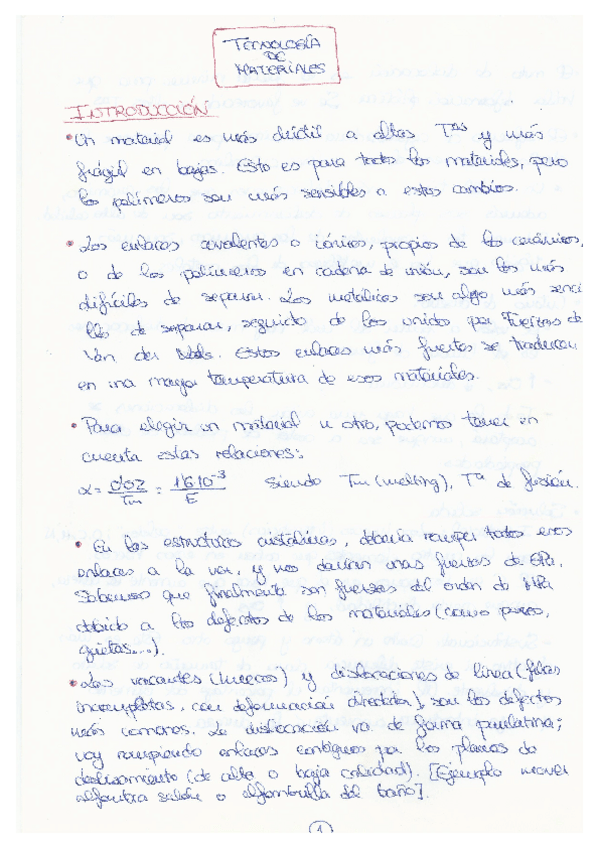 TECNOLOGÍA
DE
MATERIALES
INTRODUCCIÓN
• Un material es más dúctil a altas Tas y más
frágil en bajas. Esto es para todos los materiales, pero
los polímeros son más sensibles a estos cambios.
• Los enlaces covalentes o iónicos, propios de los cerámicos,
o de los polímeros en cadena de unión, son los más
difíciles de separar. Los metálicos son algo más senci
llos de separar, seguido de los unidos por Fuerzas de
Van der Waals. Estos enlaces más fuertes se traducen
en una mayor temperatura de esos materiales.
• Para elegir un material u otro, podemos tener en
cuenta estas relaciones:
α = 0'02/Tm = 1'6·10⁻³/E siendo Tm (melting), Tª de fusión.
• En las estructuras cristalinas, debería romper todos esos
enlaces a la vez, y nos darían unas fuerzas de GPa.
Sabemos que finalmente son fuerzas del orden de MPa
debido a los defectos de los materiales (como poros,
grietas...).
• Las vacantes (huecos) y dislocaciones de línea (filas
incompletas, con deformación alrededor), son los defectos
más comunes. La dislocación va de forma paulatina;
voy rompiendo enlaces contiguos por los planos de
deslizamiento (de alta o baja calidad). [Ejemplo mover
alfombra salón o alfombrilla del baño].
1